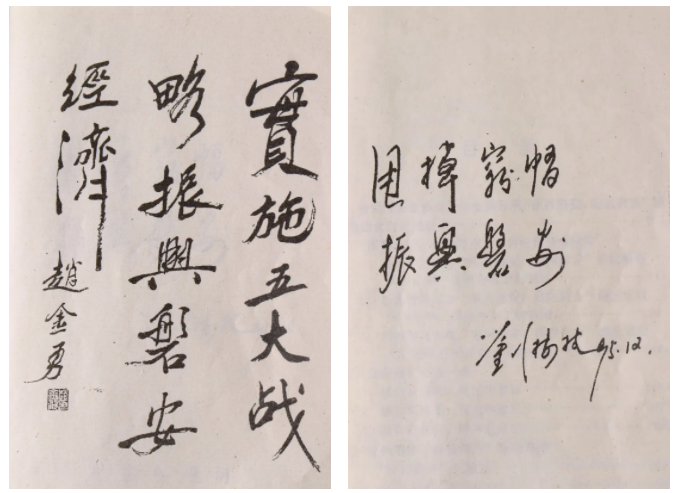 實施五大战
略振興磐安
經濟
趙金勇
甩掉窮帽
振興磐安
95.12.